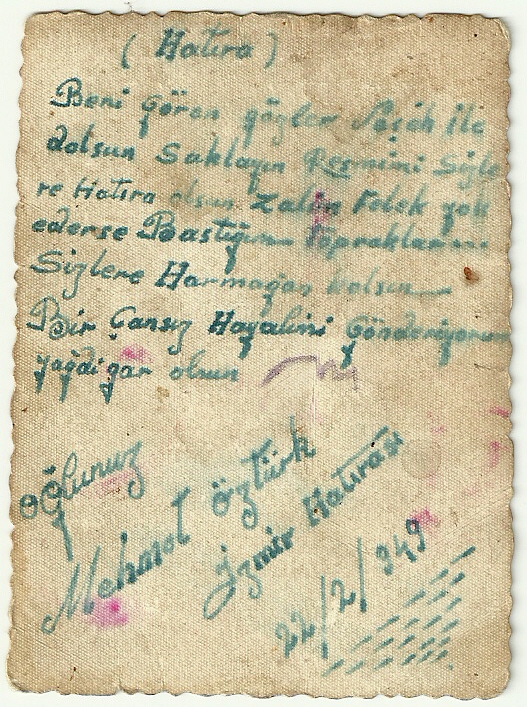 ( Hatıra )
Beni gören gözler Neşeh ile
dolsun Saklayın Resmimi Sizle
re Hatıra olsun Zalim Felek yok
ederse Bastığım Topraklarım
Sizlere Harmağan kolsun
Bir Cansız Hayalimi Gönderiyorum
yağdigar olsun
oğlunuz
Mehmet Öztürk
İzmir Hatırası
22/2/949